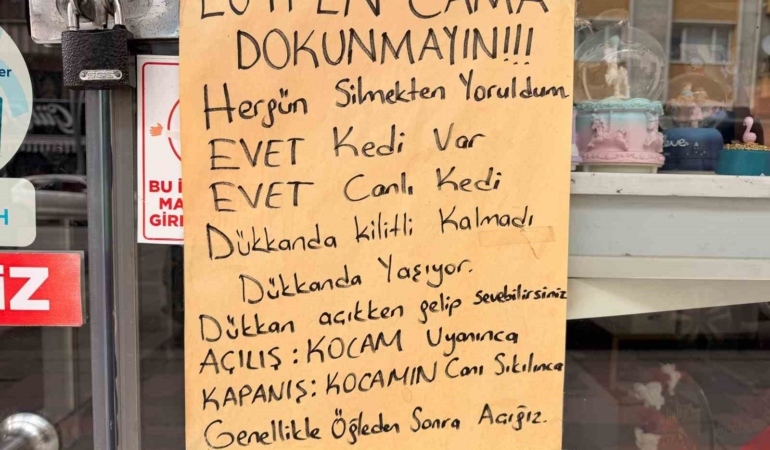 LÜTFEN CAMA
DOKUNMAYIN!!!
Hergün Silmekten Yoruldum
EVET Kedi Var
EVET Canlı Kedi
Dükkanda kilitli Kalmadı
Dükkanda Yaşıyor.
Dükkan açıkken gelip sevebilirsiniz
AÇILIŞ : KOCAM Uyanınca
KAPANIŞ : KOCAMIN Canı Sıkılınca
Genellikle Öğleden Sonra Açığız.
BU İ
MA
GİRİ
iZ
H
er